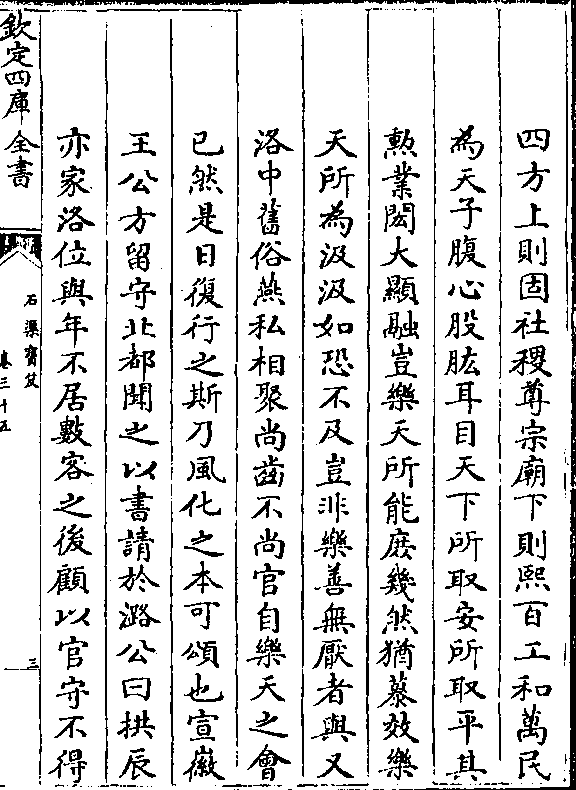 四方上則固社稷尊宗廟下則熙百工和萬民
為天子腹心股肱耳目天下所取安所取平其
勲業閎大顯融豈樂天所能庶幾然猶慕效樂
天所為汲汲如恐不及豈非樂善無厭者與又
洛中舊俗燕私相聚尚齒不尚官自樂天之會
已然是日復行之斯乃風化之本可頌也宣徽
王公方留守北都聞之以書請於潞公曰拱辰
亦家洛位與年不居數客之後顧以官守不得
欽定四庫全書
石渠寳笈
卷三十五
三